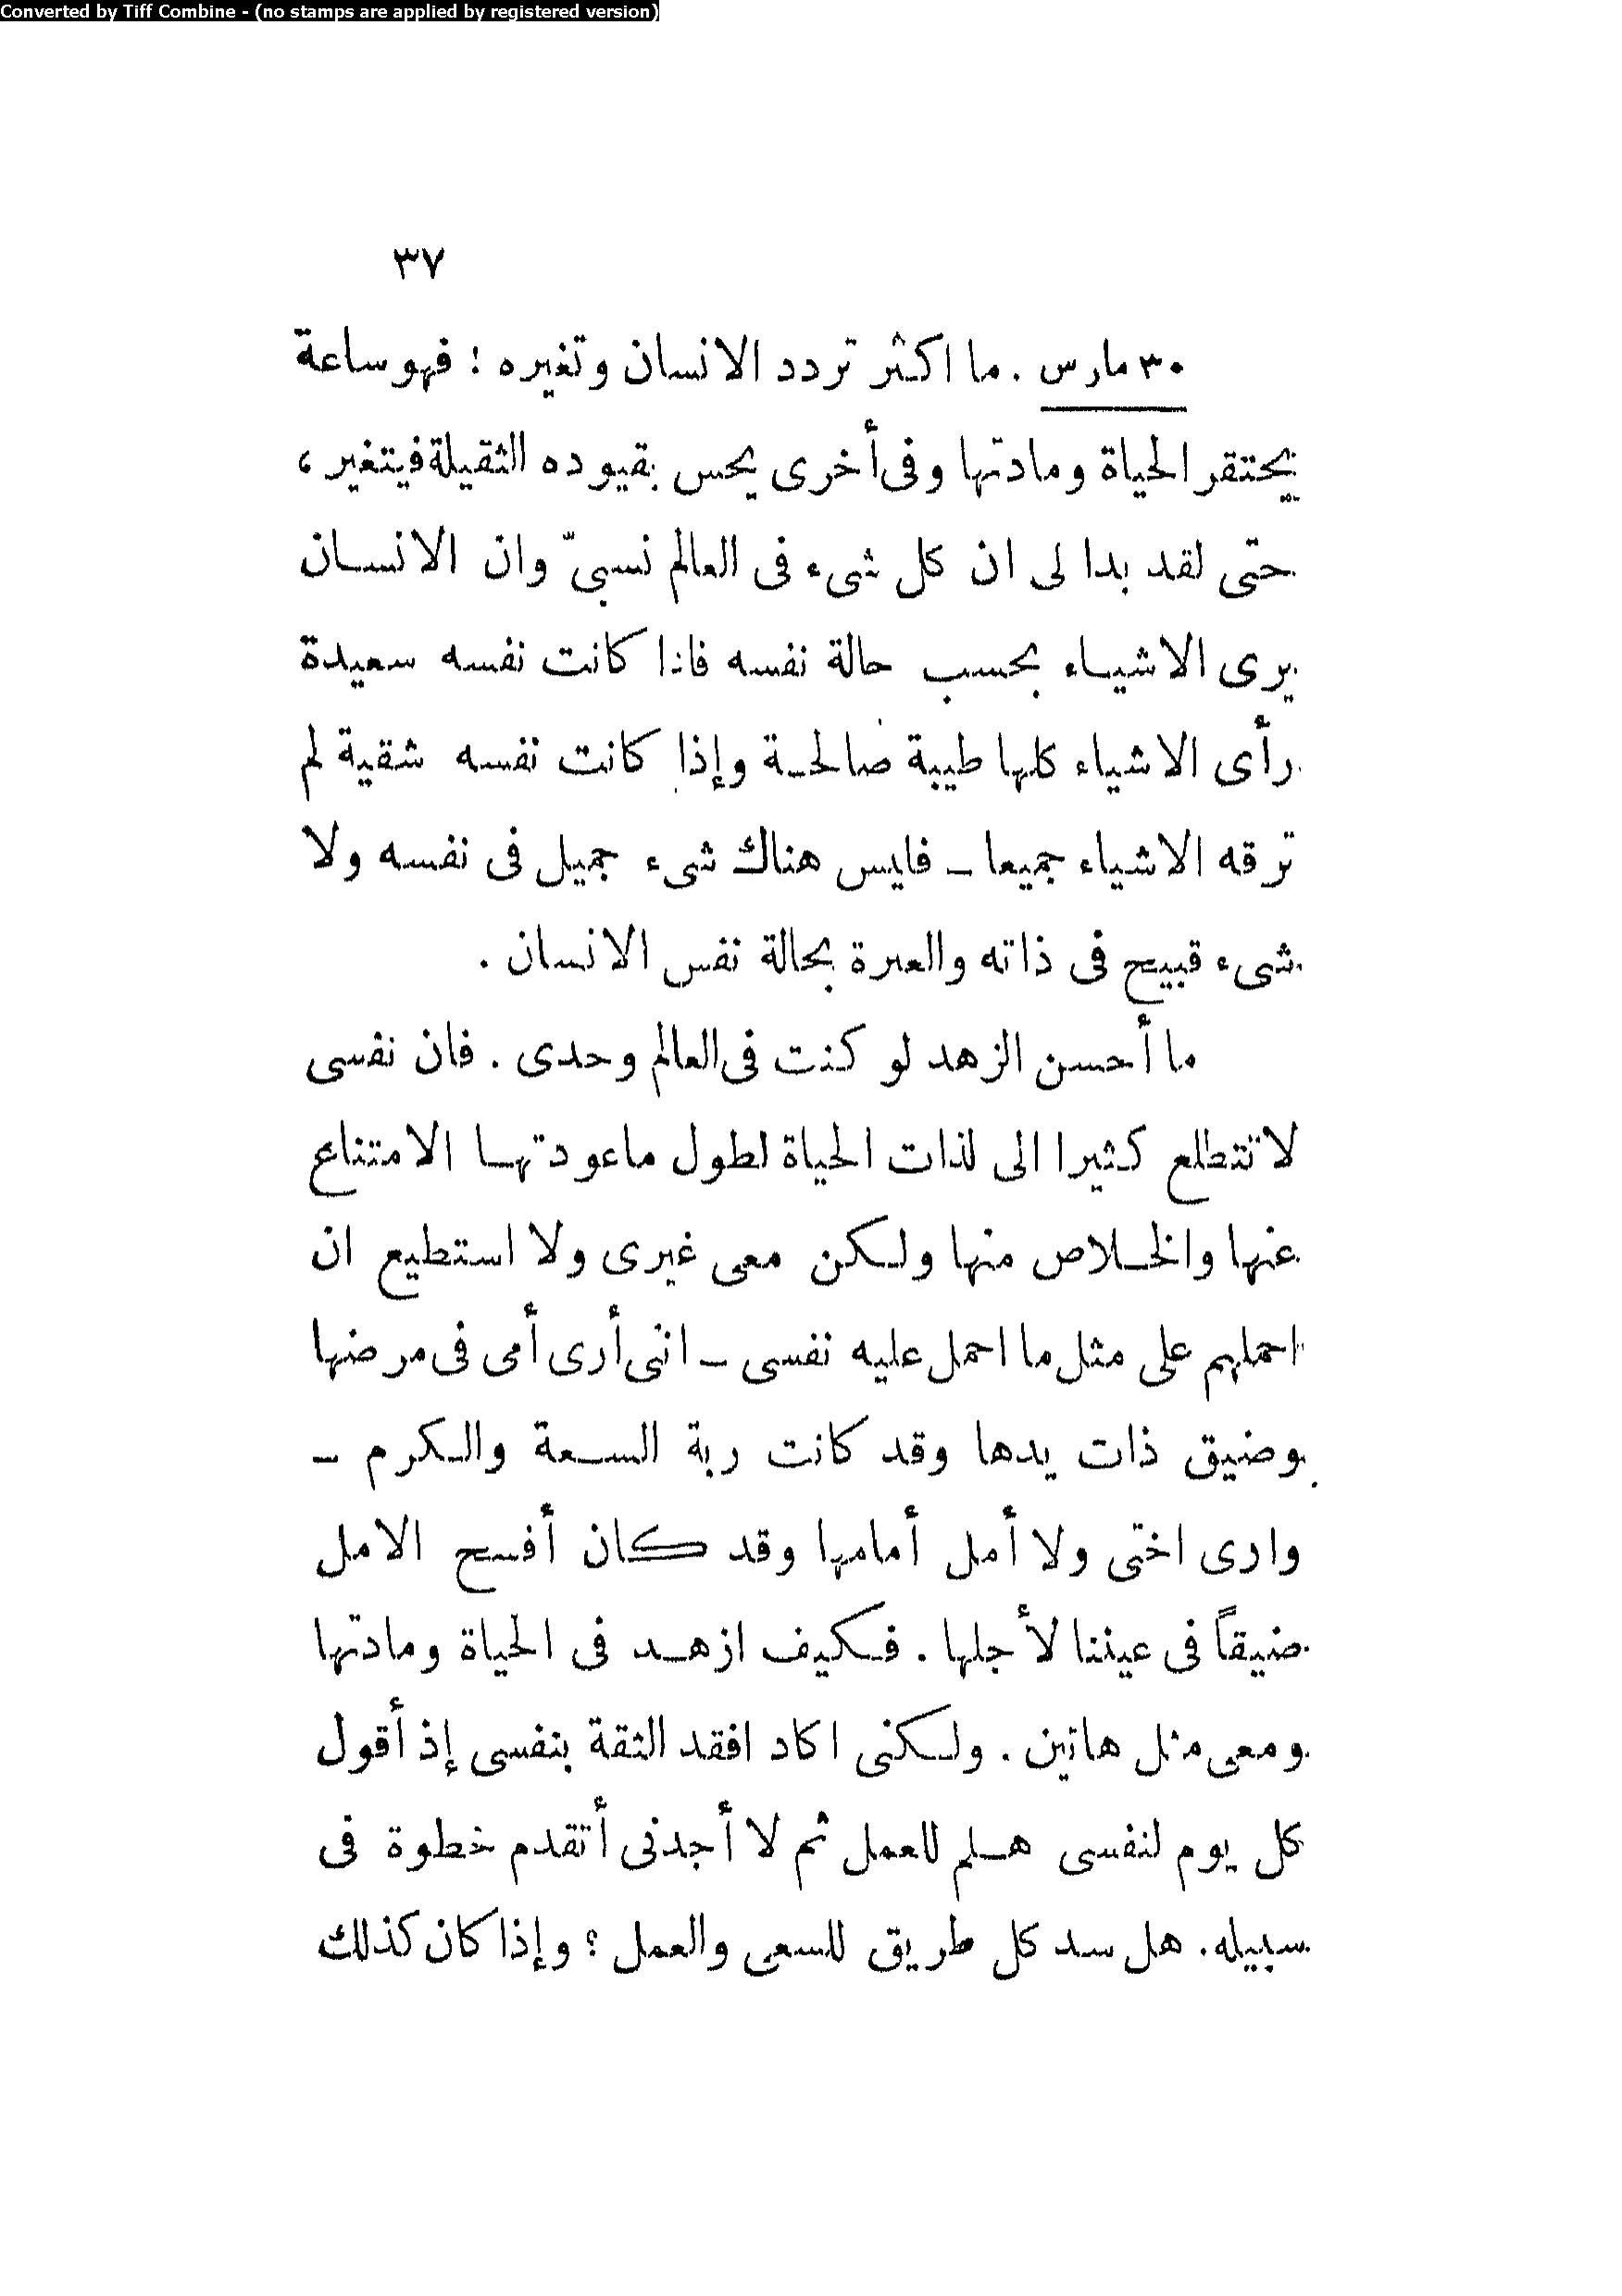 Converted by Tiff Combine - (no stamps are applied by registered version)
٣٧
٣٠ مارس . ما اكثر تردد الانسان وتغيره : فهو ساعة
يحتقر الحياة ومادتها وفى أخرى يحس بقيوده الثقيلة فيتغير ،
حتى لقد بدا لى ان كل شىء فى العالم نسبىّ وان الانسان
يرى الاشياء بحسب حالة نفسه فاذا كانت نفسه سعيدة
رأى الاشياء كلها طيبة صالحة وإذا كانت نفسه شقية لم
ترقه الاشياء جميعا ــ فليس هناك شىء جميل فى نفسه ولا
شىء قبيح فى ذاته والعبرة بحالة نفس الانسان .
ما أحسن الزهد لو كنت فى العالم وحدى . فان نفسى
لا تتطلع كثيرا الى لذات الحياة لطول ماعودتها الامتناع
عنها والخلاص منها ولكن معى غيرى ولا استطيع ان
احملهم على مثل ما احمل عليه نفسى ــ انى أرى أمى فى مرضها
وضيق ذات يدها وقد كانت ربة السعة والكرم ــ
وارى اختى ولا أمل أمامها وقد كان أفسح الامل
ضيقاً فى عيننا لأجلها . فكيف ازهد فى الحياة ومادتها
ومعى مثل هاتين . ولكنى اكاد افقد الثقة بنفسى إذ أقول
كل يوم لنفسى هلم للعمل ثم لا أجدنى أتقدم خطوة فى
سبيله . هل سد كل طريق للسعى والعمل ؟ وإذا كان كذلك